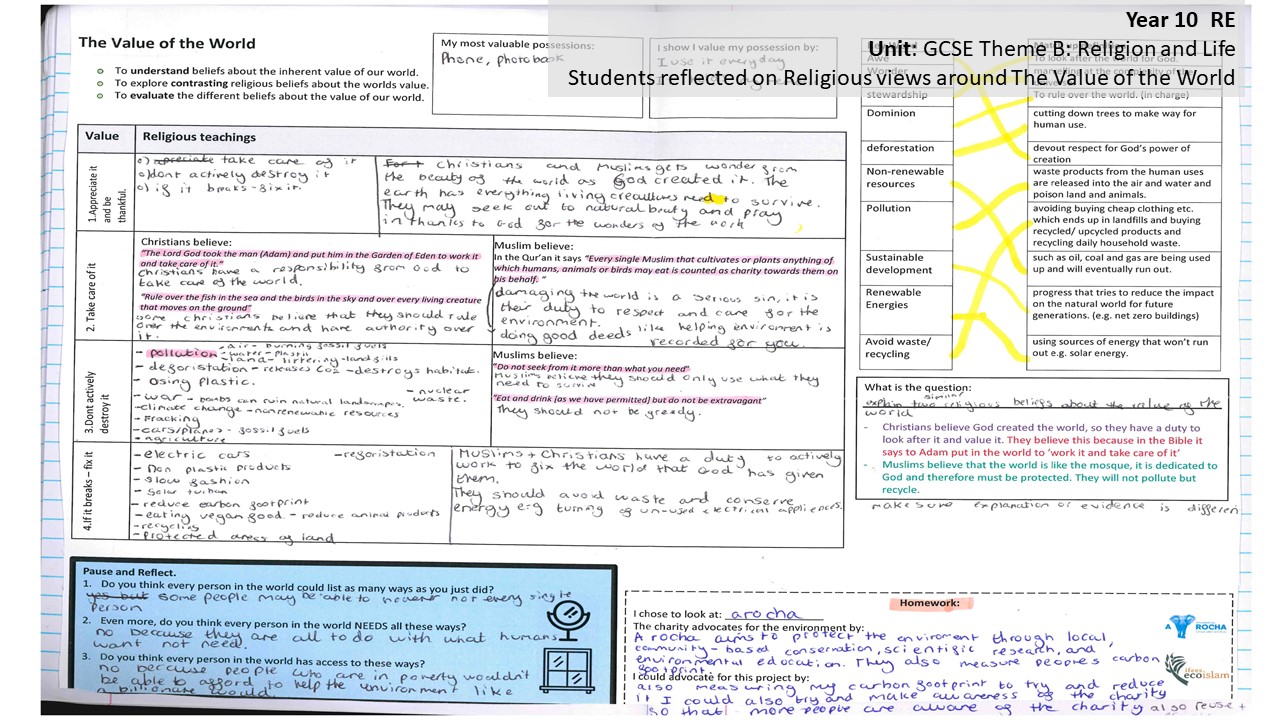 Year 10 RE
Unit: GCSE Theme B: Religion and Life
Students reflected on Religious views around The Value of the World
The Value of the World
To understand beliefs about the inherent value of our world.
To explore contrasting religious beliefs about the worlds value.
To evaluate the different beliefs about the value of our world.
My most valuable possessions:
Phone, photobook
I show I value my possession by:
I use it everyday
Value
Religious teachings
1.Appreciate it
and be
thankful.
o) appreciate take care of it
o) dont actively destroy it
o) if it breaks - fix it.
Christians and Muslims gets wonder from
the beauty of the world as God created it. The
earth has everything living creatures need to survive.
They may seek out to natural beauty and pray
in thanks to God for the wonders of the work
2. Take care of it
Christians believe:
"The Lord God took the man (Adam) and put him in the Garden of Eden to work it
and take care of it."
Christians have a responsibility from God to
take care of the world.
"Rule over the fish in the sea and the birds in the sky and over every living creature
that moves on the ground"
some christians believe that they should rule
over the environments and have authority over
it.
Muslim believe:
In the Qur'an it says "Every single Muslim that cultivates or plants anything of
which humans, animals or birds may eat is counted as charity towards them on
his behalf. "
damaging the world is a serious sin, it is
their duty to respect and care for the
environment.
doing good deeds like helping environment is
recorded for you.
3.Dont actively
destroy it
- air - burning fossil fuels
- pollution - water - plastic
- land - littering - land fills
- deforistation - releases CO2 - destroys habitat.
- Using plastic.
- war - bombs can ruin natural landscapes.
- nuclear
waste.
- climate change - nonrenewable resources
- Fracking
- cars/planes - fossil fuels
- agriculture
Muslims believe:
"Do not seek from it more than what you need"
Muslims believe they should only use what they
need to survive
"Eat and drink [as we have permitted] but do not be extravagant"
They should not be greedy.
4.If it breaks – fix it
- electric cars
- reforistation
- Non plastic products
- slow fashion
- Solar
- reduce carbon footprint
- eating vegan food - reduce animal products
- recycling
- Protected areas of land
Muslims + Christians have a duty to actively
work to fix the world that God has given
them.
They should avoid waste and conserve
energy e.g turning of un-used electrical appliences.
Awe
Wonder
stewardship
Dominion
deforestation
Non-renewable
resources
Pollution
Sustainable
development
Renewable
Energies
Avoid waste/
recycling
To look after the world for God.
To rule over the world. (in charge)
cutting down trees to make way for
human use.
devout respect for God's power of
creation
waste products from the human uses
are released into the air and water and
poison land and animals.
avoiding buying cheap clothing etc.
which ends up in landfills and buying
recycled/ upcycled products and
recycling daily household waste.
such as oil, coal and gas are being used
up and will eventually run out.
progress that tries to reduce the impact
on the natural world for future
generations. (e.g. net zero buildings)
using sources of energy that won't run
out e.g. solar energy.
What is the question:
similar
explain two religious beliefs about the value of the
world
- Christians believe God created the world, so they have a duty to
look after it and value it. They believe this because in the Bible it
says to Adam put in the world to 'work it and take care of it'
- Muslims believe that the world is like the mosque, it is dedicated to
God and therefore must be protected. They will not pollute but
recycle.
make sure explanation or evidence is differen
Pause and Reflect.
1. Do you think every person in the world could list as many ways as you just did?
yes but some people may be able to however not every single
Person
2. Even more, do you think every person in the world NEEDS all these ways?
no because they are all to do with what humans
want not need.
3. Do you think every person in the world has access to these ways?
no because people who are in poverty wouldn't
be able to afford to help the environment like
a billionate would
Homework:
I chose to look at: arocha
The charity advocates for the environment by:
A rocha aims to protect the enviroment through local,
community - based conservation, scientific research, and
environmental education. They also measure peoples carbon
footprint.
I could advocate for this project by:
also measuring my carbon footprint to try and reduce
it I could also try and make awareness of the charity
so that more people are aware of the charity also reuse +
A ROCHA
ifees
ecoislam